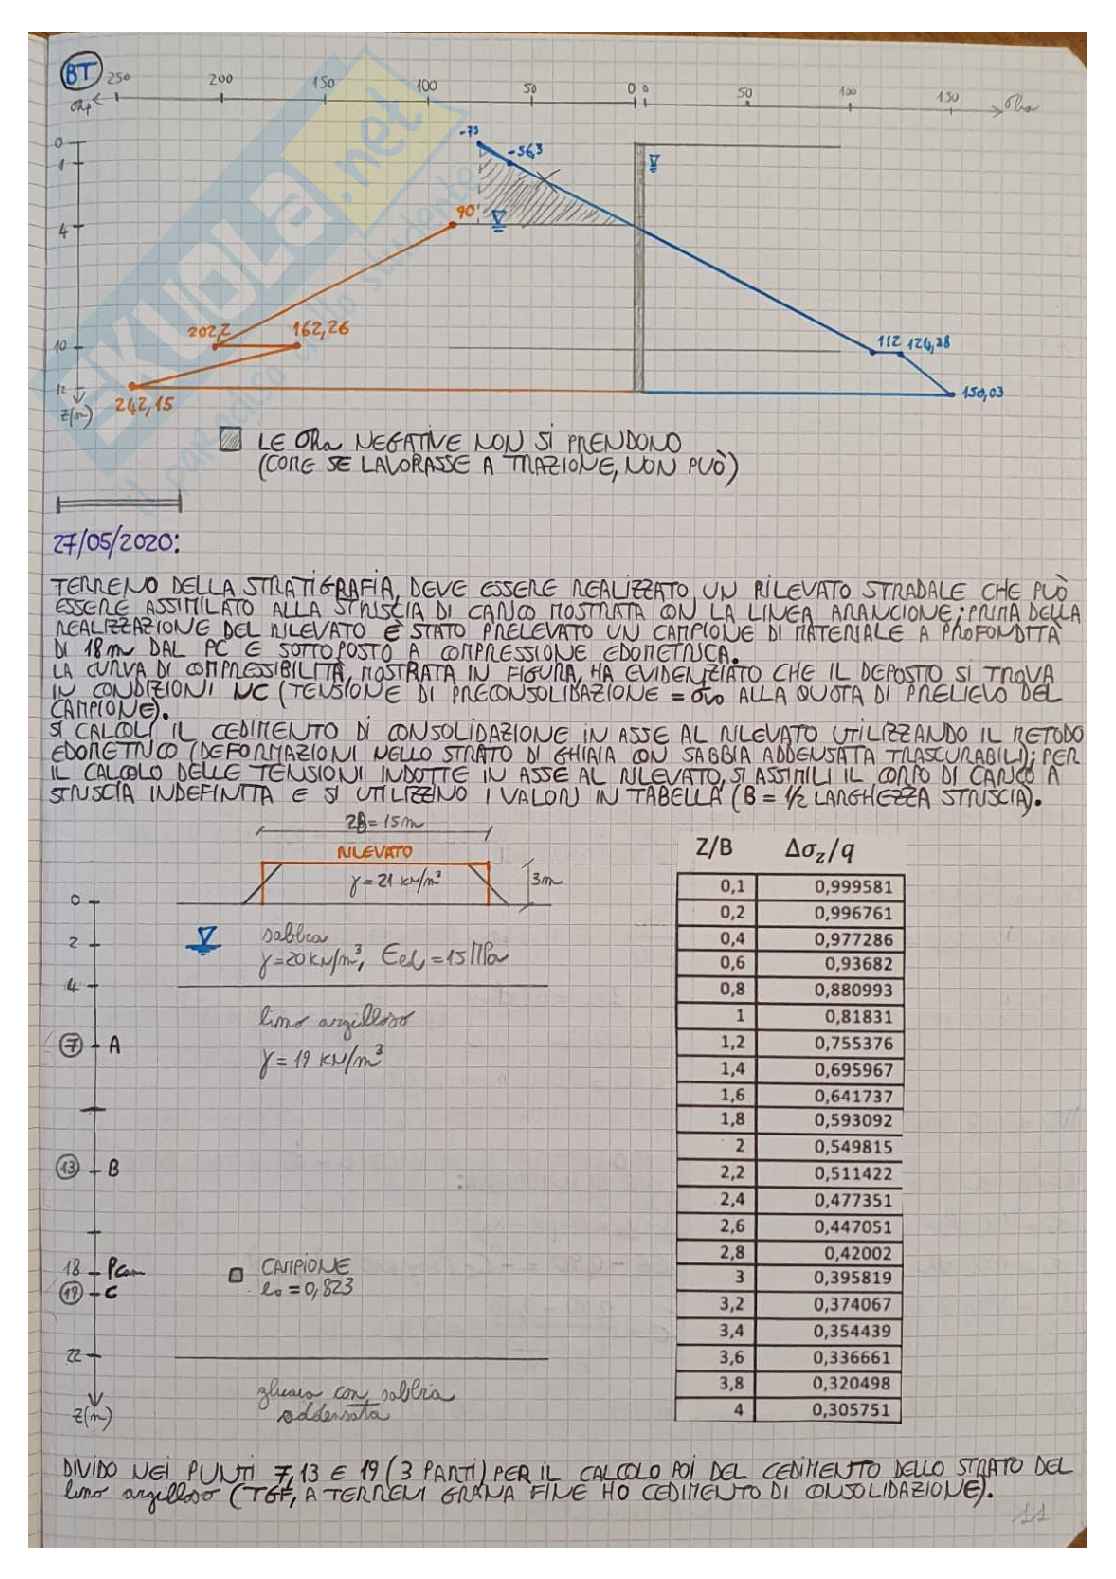 BT
250 200 150 100 50 0 0 50 100 150
σhp σha
0
1
4
10
12
z(m)
-75
-56,3
90
202,2
162,26
242,15
112 124,28
150,03
SKUOLA.net
LE σha NEGATIVE NON SI PRENDONO
(COME SE LAVORASSE A TRAZIONE, NON PUÒ)
27/05/2020:
TERRENO DELLA STRATIGRAFIA, DEVE ESSERE REALIZZATO UN RILEVATO STRADALE CHE PUÒ
ESSERE ASSIMILATO ALLA STRISCIA DI CARICO MOSTRATA CON LA LINEA ARANCIONE; PRIMA DELLA
REALIZZAZIONE DEL RILEVATO È STATO PRELEVATO UN CAMPIONE DI MATERIALE A PROFONDITÀ
DI 18m DAL PC E SOTTOPOSTO A COMPRESSIONE EDOMETRICA.
LA CURVA DI COMPRESSIBILITÀ, MOSTRATA IN FIGURA, HA EVIDENZIATO CHE IL DEPOSTO SI TROVA
IN CONDIZIONI NC (TENSIONE DI PRECONSOLIDAZIONE = σ'vo ALLA QUOTA DI PRELIEVO DEL
CAMPIONE).
SI CALCOLI IL CEDIMENTO DI CONSOLIDAZIONE IN ASSE AL RILEVATO UTILIZZANDO IL METODO
EDOMETRICO (DEFORMAZIONI NELLO STRATO DI GHIAIA CON SABBIA ADDENSATA TRASCURABILI); PER
IL CALCOLO DELLE TENSIONI INDOTTE IN ASSE AL RILEVATO, SI ASSIMILI IL CORPO DI CARICO A
STRISCIA INDEFINITA E SI UTILIZZINO I VALORI IN TABELLA (B = 1/2 LARGHEZZA STRISCIA).
2B=15m
RILEVATO
γ=21 kN/m³
3m
0
2
4
7 A
13 B
18 PCam
19 C
22
z(m)
sabbia
γ=20 kN/m³, Eed=15MPa
limo argilloso
γ=19 kN/m³
CAMPIONE
e₀=0,823
ghiaia con sabbia
addensata
Z/B Δσz/q
0,1 0,999581
0,2 0,996761
0,4 0,977286
0,6 0,93682
0,8 0,880993
1 0,81831
1,2 0,755376
1,4 0,695967
1,6 0,641737
1,8 0,593092
2 0,549815
2,2 0,511422
2,4 0,477351
2,6 0,447051
2,8 0,42002
3 0,395819
3,2 0,374067
3,4 0,354439
3,6 0,336661
3,8 0,320498
4 0,305751
DIVIDO NEI PUNTI 7,13 E 19 (3 PARTI) PER IL CALCOLO POI DEL CEDIMENTO DELLO STRATO DEL
limo argilloso (TGF, A TERRENI GRANA FINE HO CEDIMENTO DI CONSOLIDAZIONE).
11